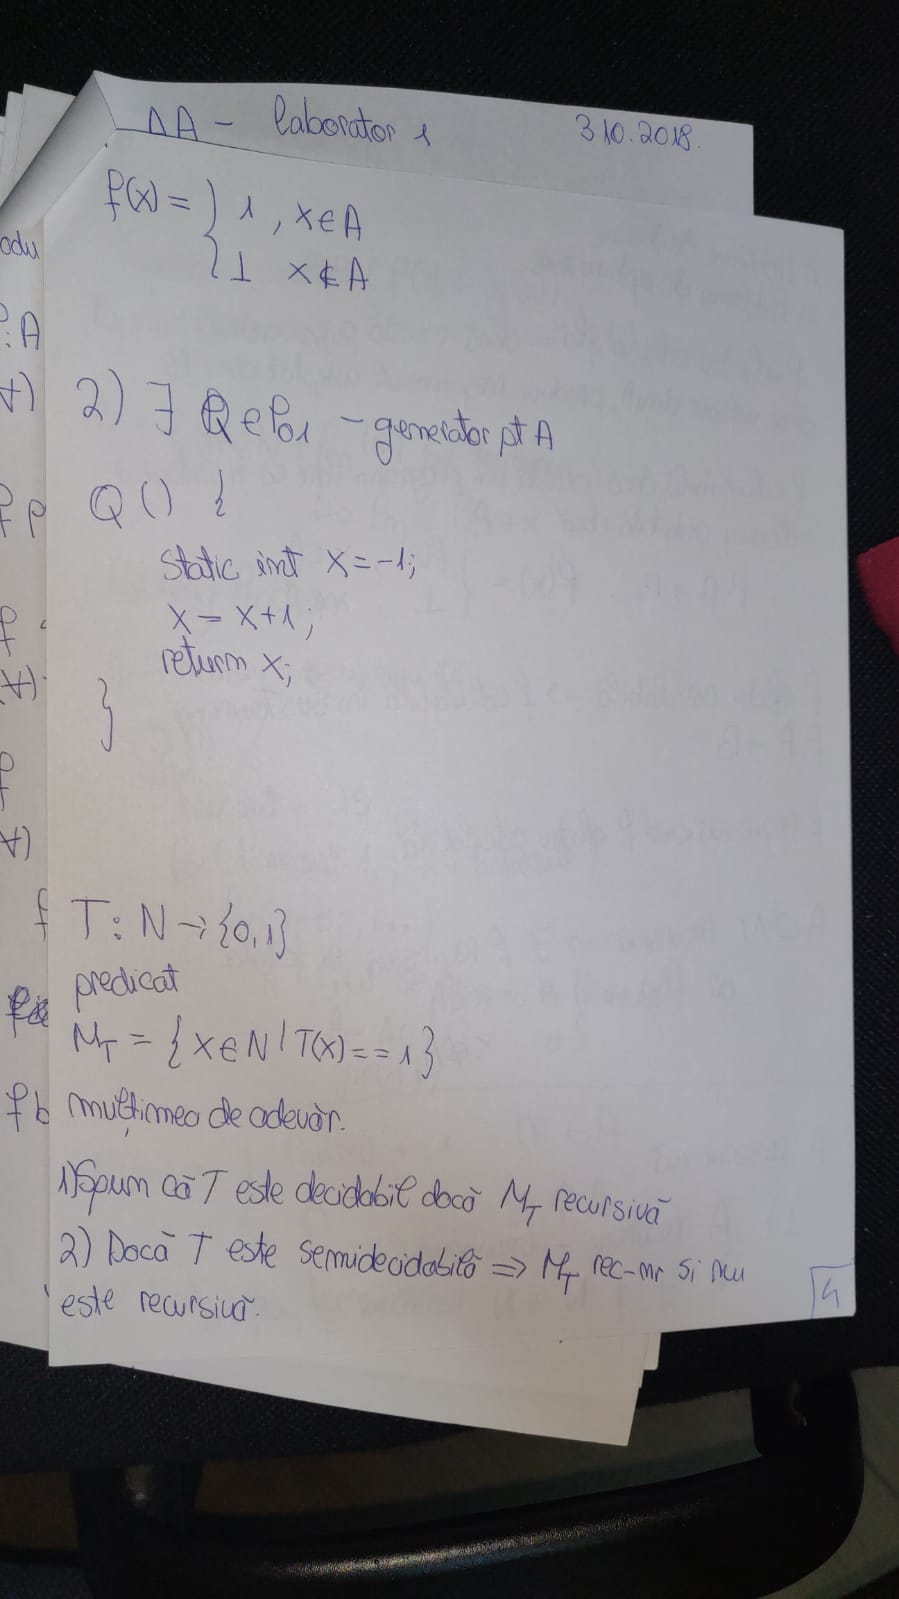 AA - laborator 1 3.10.2018.
f(x) = { 1 , x∈A
⊥ x∉A
odu
: A
∀)
2) ∃ Q∈P01 - generator pt A
f p
Q() {
static int x=-1;
x = x+1;
f
return x;
∀)
}
∀)
f
T: N → {0,1}
predicat
M_T = { x∈N | T(x) == 1 }
fb
mulțimea de adevăr.
1) Spun că T este decidabil dacă M_T recursivă
2) Dacă T este semidecidabilă => M_T rec-nr si nu
este recursivă.
4